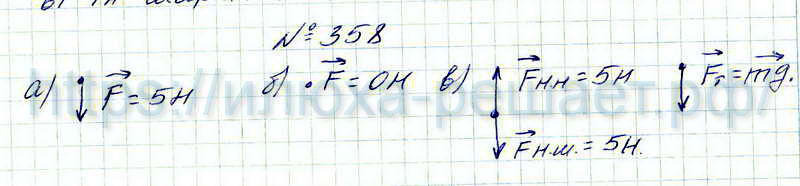 №358
а) F⃗ = 5Н б) F⃗ = 0Н в) F⃗н.н = 5Н F⃗т = m⃗g.
F⃗н.ш. = 5Н.
https://илюха-решает.рф/